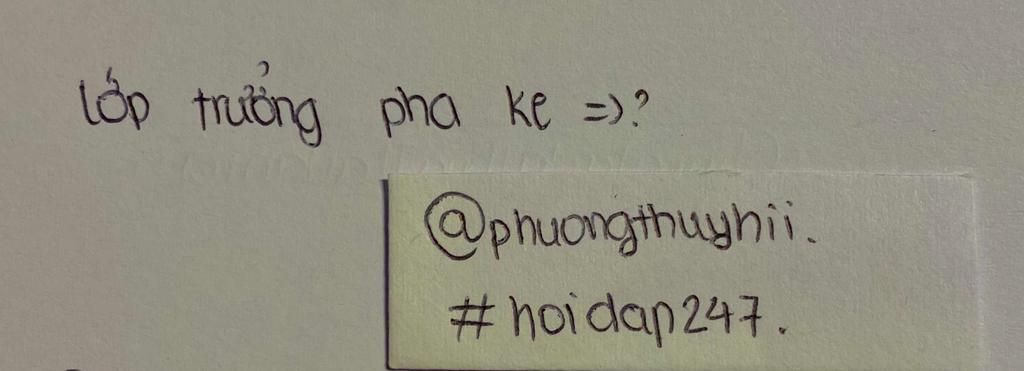 lớp trưởng pha ke =)?
@phuongthuyhii.
#hoidap247.